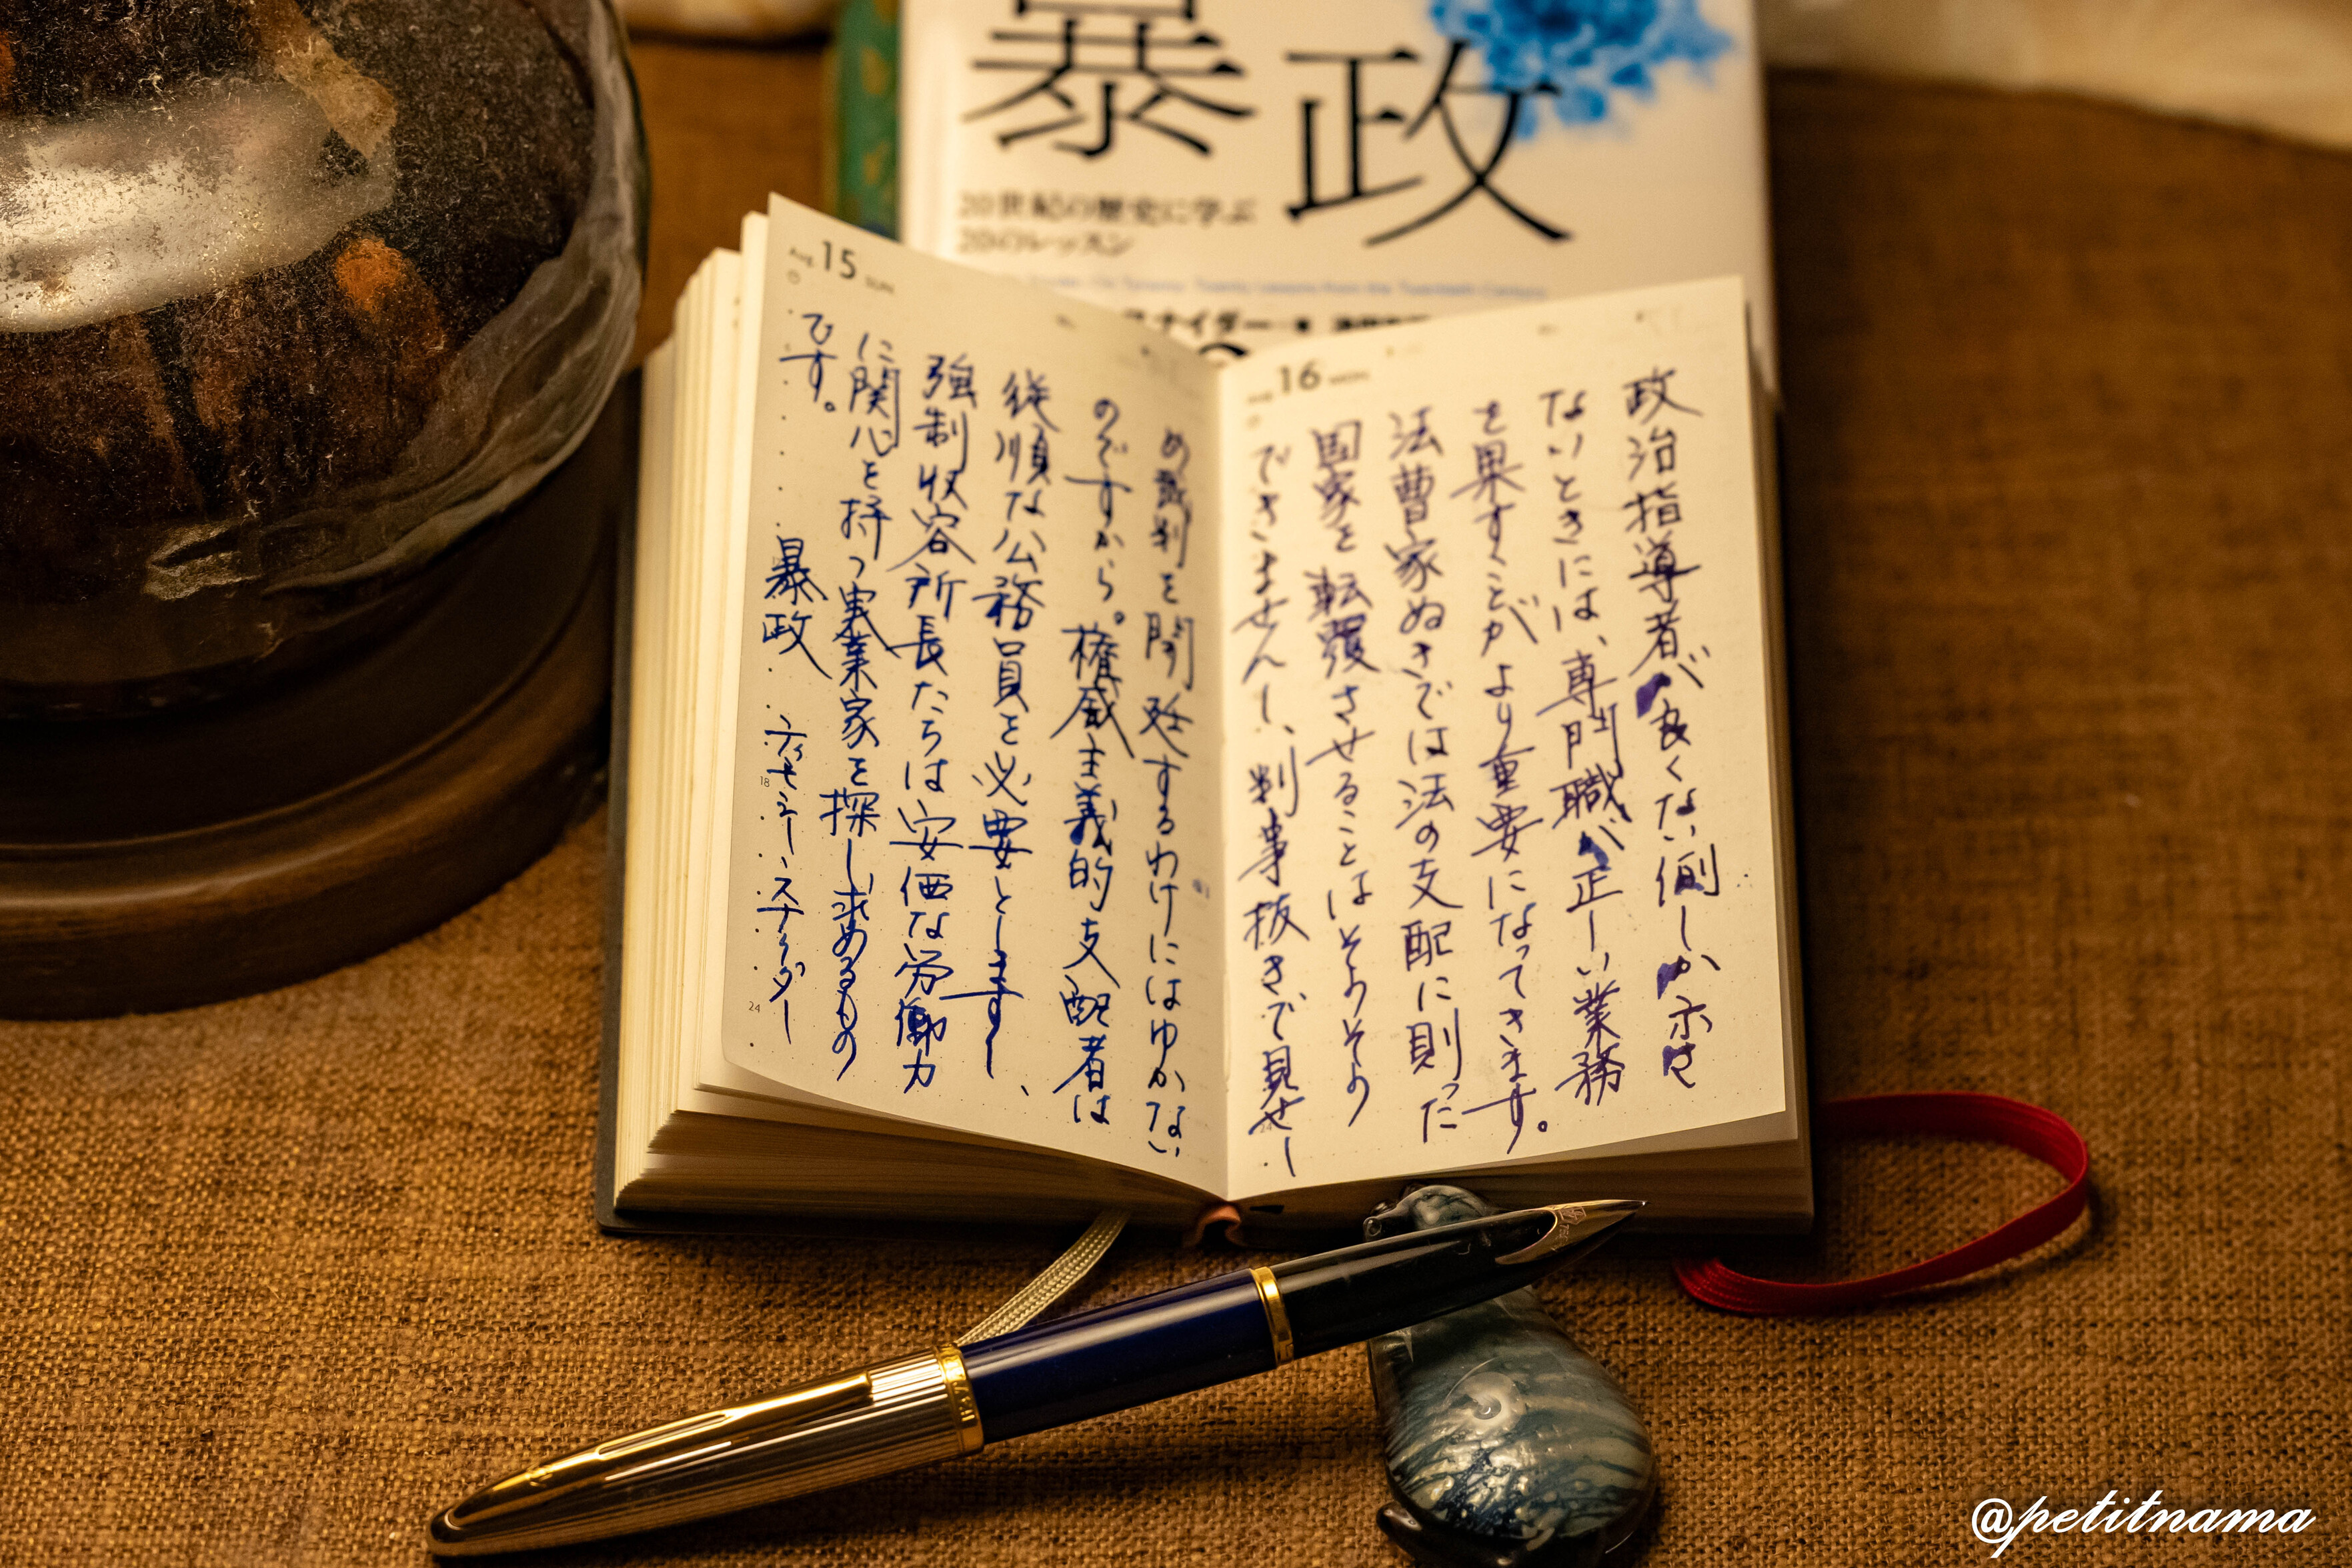 暴政
20世紀の歴史に学ぶ
20のレッスン
スナイダー
Aug 15 SUN
16
政治指導者が良くない例しか示さ
ないときには、専門職が正しい業務
を果すことがより重要になってきます。
法曹家ぬきでは法の支配に則った
国家を転覆させることはそうそう
できませんし、判事抜きで見せし
め裁判を開廷するわけにはゆかない
のですから。権威主義的支配者は
従順な公務員を必要としますし、
強制収容所長たちは安価な労働力
に関心を持つ実業家を探し求めるもの
です。
暴政 ティモシー・スナイダー
18
24
@petitnama